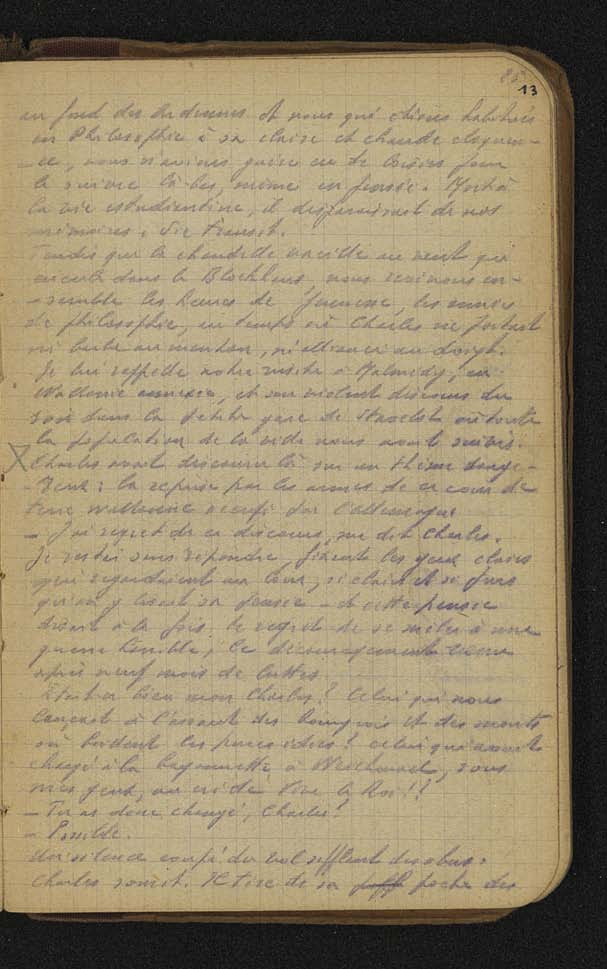 85
13
au fond des Ardennes et nous qui étions habitués
en Philosophie à sa claire et chaude éloquen-
-ce, nous n'avions guère eu de loisirs pour
le suivre là-bas, même en pensée. Mort à
la vie estudiantine, il disparaissait de nos
mémoires. Sic transit.
Tandis que la chandelle vacille au vent qui
circule dans le Blockhaus, nous revivons en-
-semble les heures de jeunesse, les années
de philosophie, au temps où Charles ne portait
ni barbe au menton, ni alliance au doigt.
Je lui rappelle notre visite à Malmedy, en
Wallonie annexée, et son violent discours du
soir dans la petite gare de où toute
la population de la ville nous avait suivis.
Charles avait discouru là sur un thème dange-
-reux : la reprise par les armes de ce coin de
terre wallonne occupé par l'Allemagne
- J'ai regret de ce discours, me dit Charles.
Je restai sans répondre, fixant les yeux clairs
qui regardaient au loin, si clairs et si purs
qu'on y lisait sa pensée - et cette pensée
disait à la fois le regret de se mêler à une
guerre horrible, le découragement
après neuf mois de luttes.
Était-ce bien mon Charles ? Celui qui nous
lançait à l'assaut des bourgeois et des
où les idées ? celui qui avait
chargé à la baïonnette à sous
mes yeux, au cri de Vive le Roi !!
- Tu as donc changé, Charles !
- Possible.
Un silence coupé du vol sifflant des obus.
Charles sourit. Il tire de sa poche des